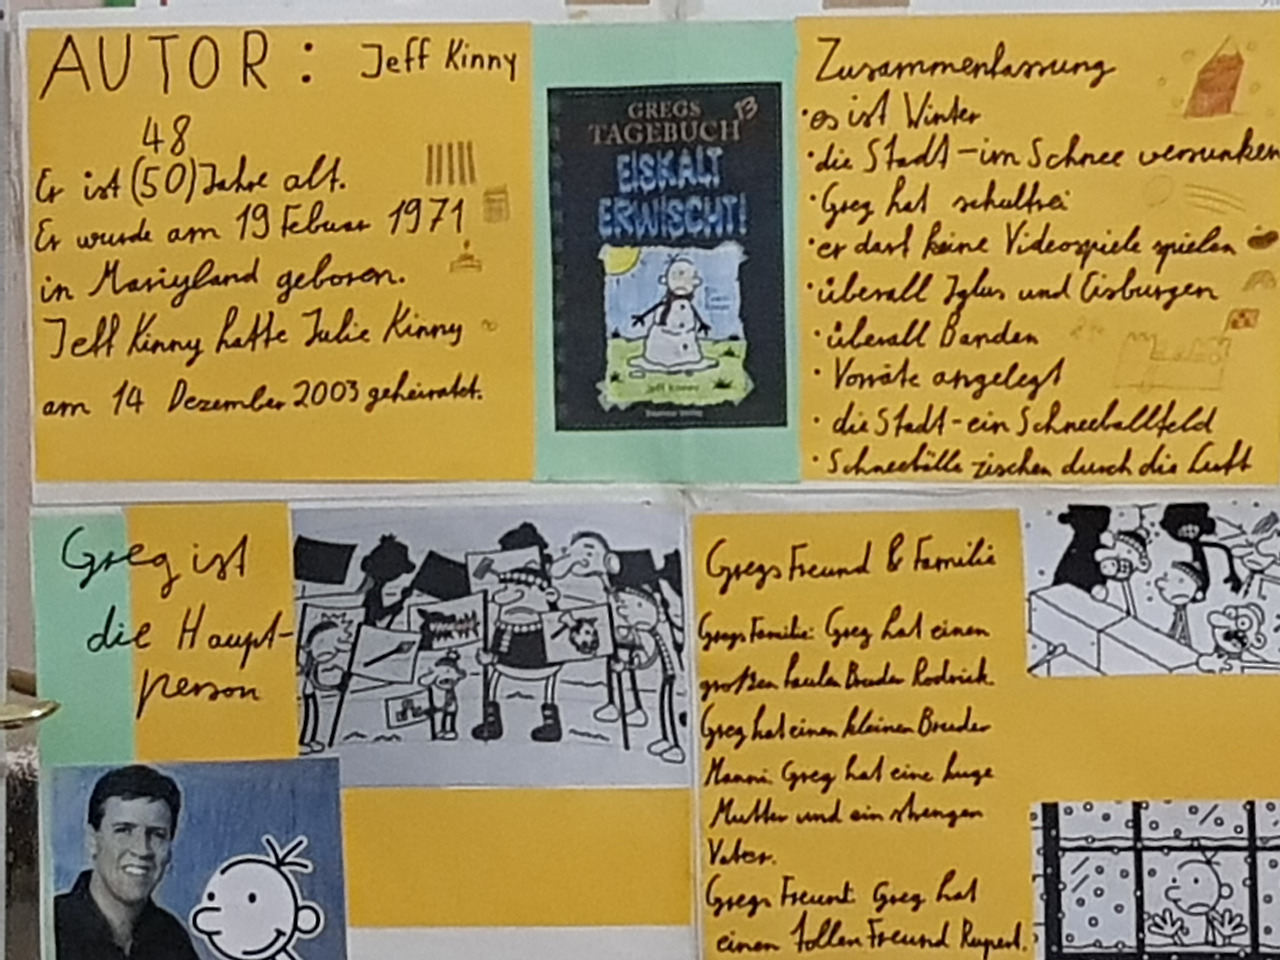 AUTOR: Jeff Kinny
48
Er ist (50) Jahre alt.
Er wurde am 19 Febuar 1971
in Marieyland geboren.
Jeff Kinny hatte Julie Kinny
am 14 Dezember 2003 geheiratet.
GREGS
TAGEBUCH 13
EISKALT
ERWISCHT!
Jeff Kinney
Zusammenfassung
·es ist Winter
·die Stadt-im Schnee versunken
·Greg hat schulfrei
·er darf keine Videospiele spielen
·überall Iglus und Eisburgen
·überall Banden
·Vorräte angelegt
·die Stadt-ein Schneeballfeld
·Schneebälle zischen durch die Luft
Greg ist
die Haupt-
person
Gregs Freund & Familie
Gregs Familie: Greg hat einen
großen faulen Bruder Rodrick.
Greg hat einen kleinen Bruder
Manni. Greg hat eine
Mutter und ein strengen
Vater.
Gregs Freunt: Greg hat
einen tollen Freund Rupert.